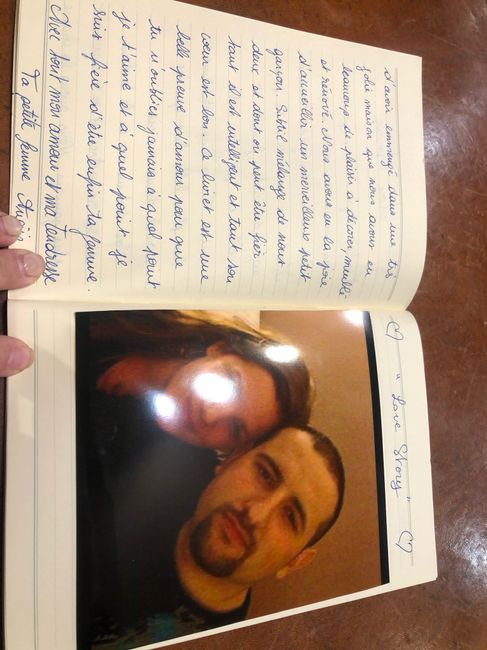 d'avoir emménagé dans une très
jolie maison que nous avons eu
beaucoup de plaisir à décorer, meubler
et rénover. Nous avons eu la joie
d'accueillir un merveilleux petit
garçon. Subtil mélange de nous
deux et dont on peut être fier
tant il est intelligent et tant son
cœur est bon. Ce livret est une
belle preuve d'amour pour que
tu n'oublies jamais à quel point
je t'aime et à quel point je
suis fière d'être enfin ta femme.
Avec tout mon amour et ma tendresse
Ta petite femme
♡ "Love Story" ♡